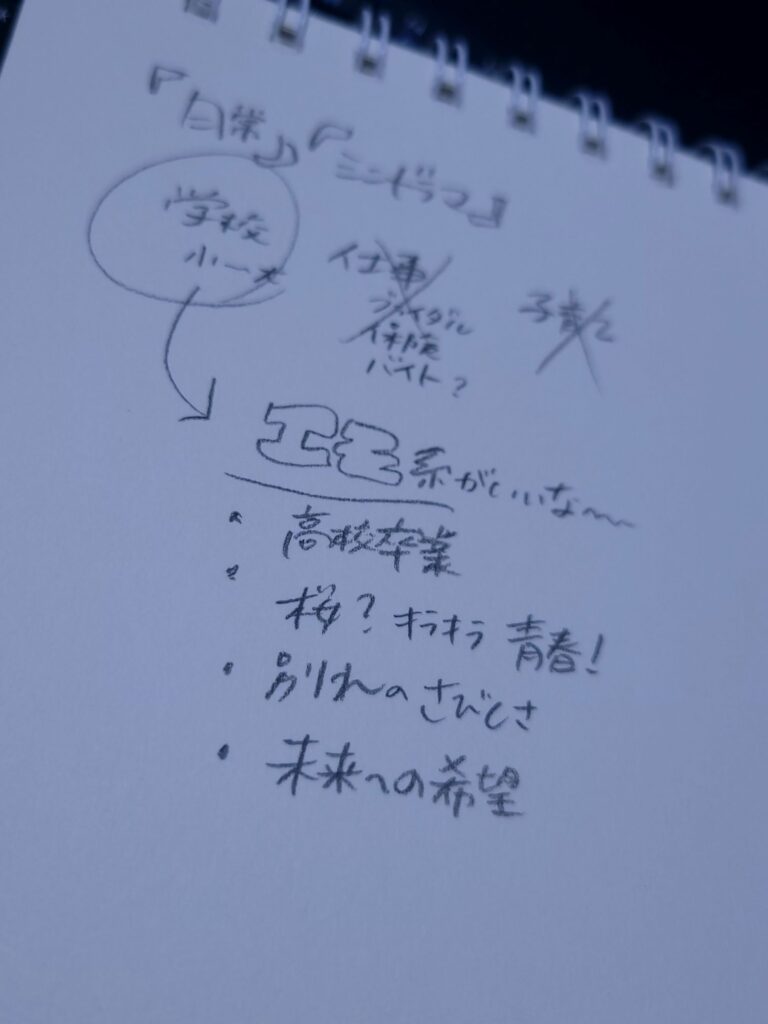 『日常』『ミニドラマ』
学校
小〜大
仕事
ブライダル
保険
バイト?
子育て
エモ系がいいな〜
・高校卒業
・桜?キラキラ 青春!
・別れのさびしさ
・未来への希望